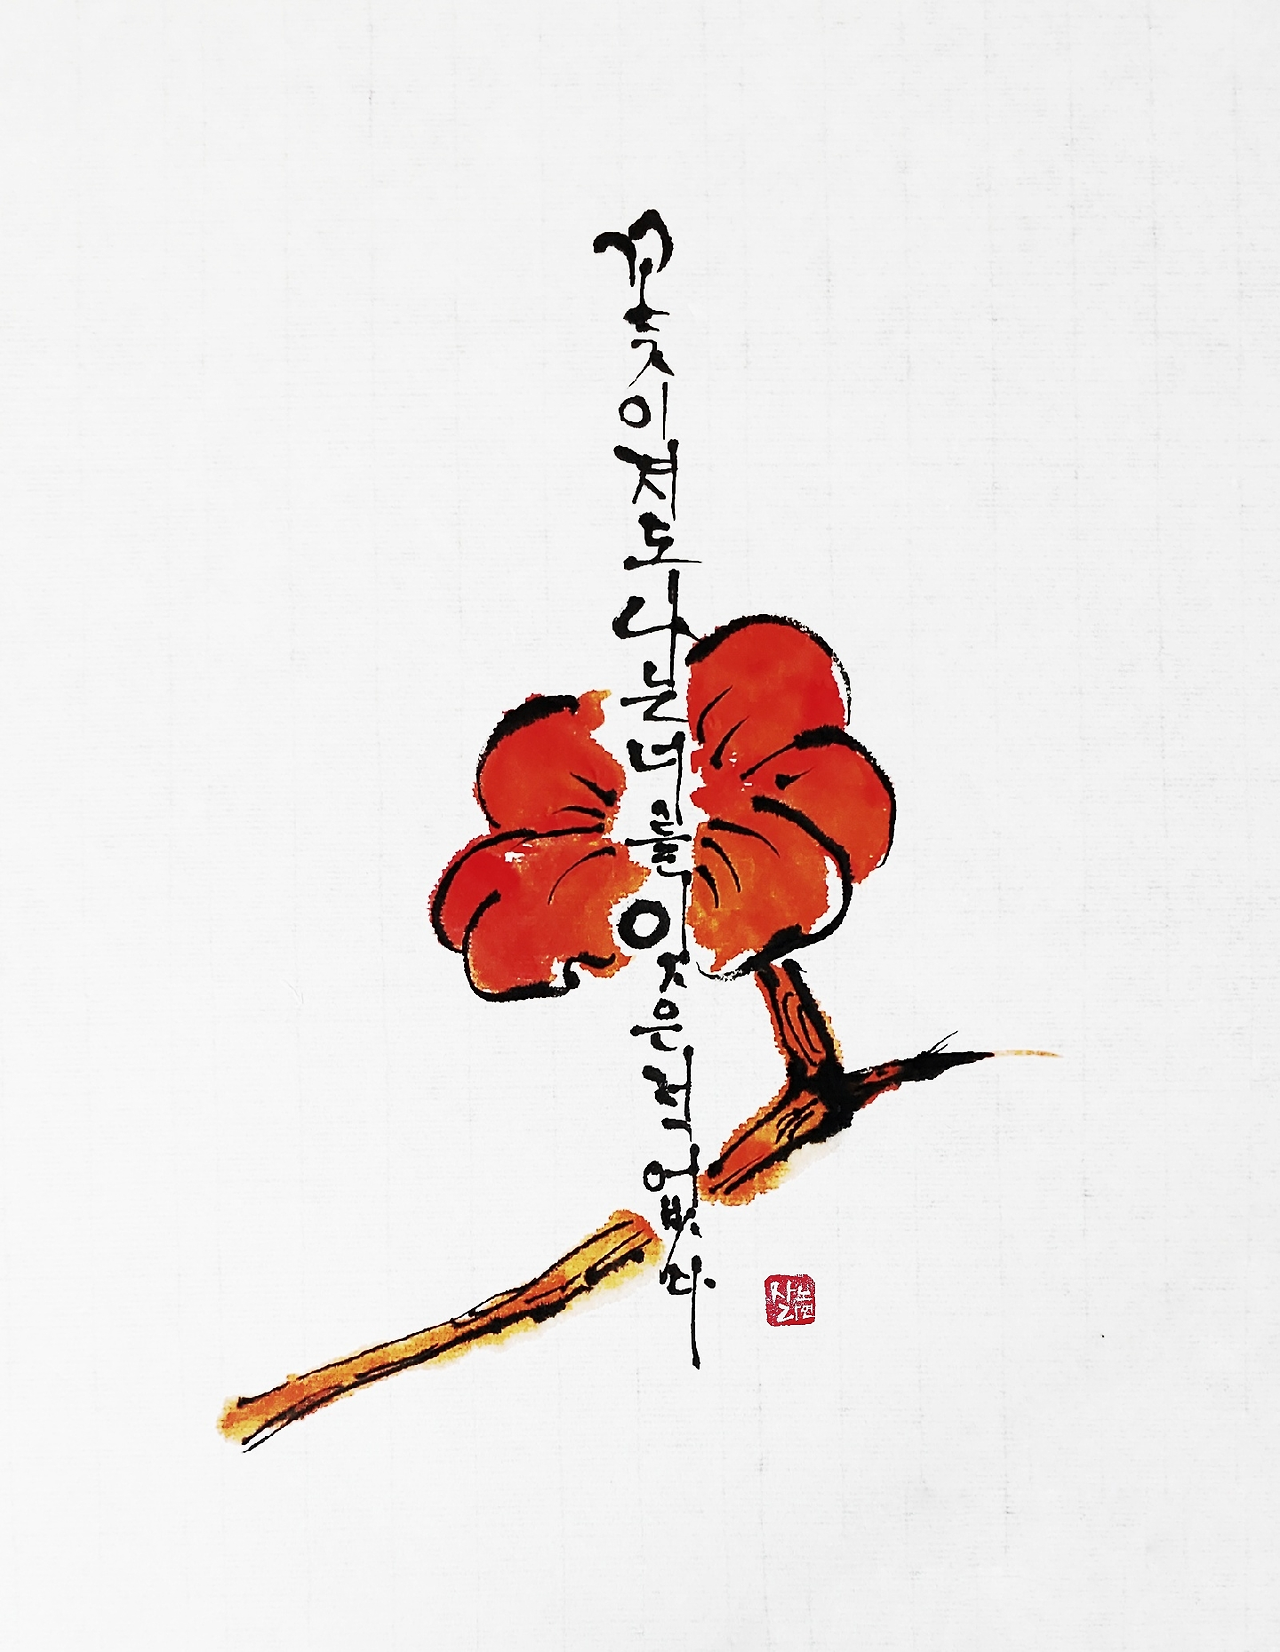 꽃이져도나는너를잊은적없다